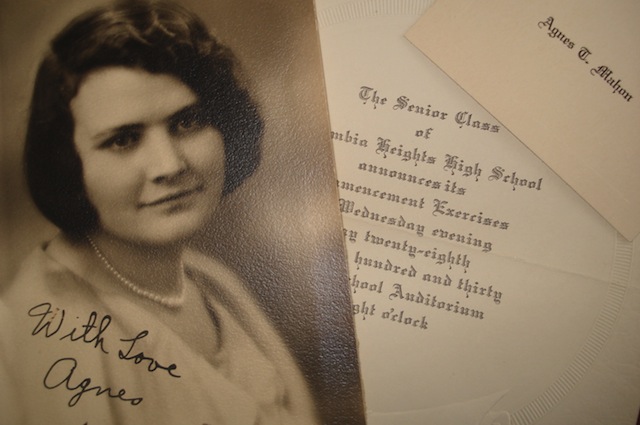 Agnes T. Mahon
The Senior Class
of
mbia Heights High School
announces its
mencement Exercises
Wednesday evening
ay twenty-eighth
hundred and thirty
hool Auditorium
ght o'clock
With Love
Agnes